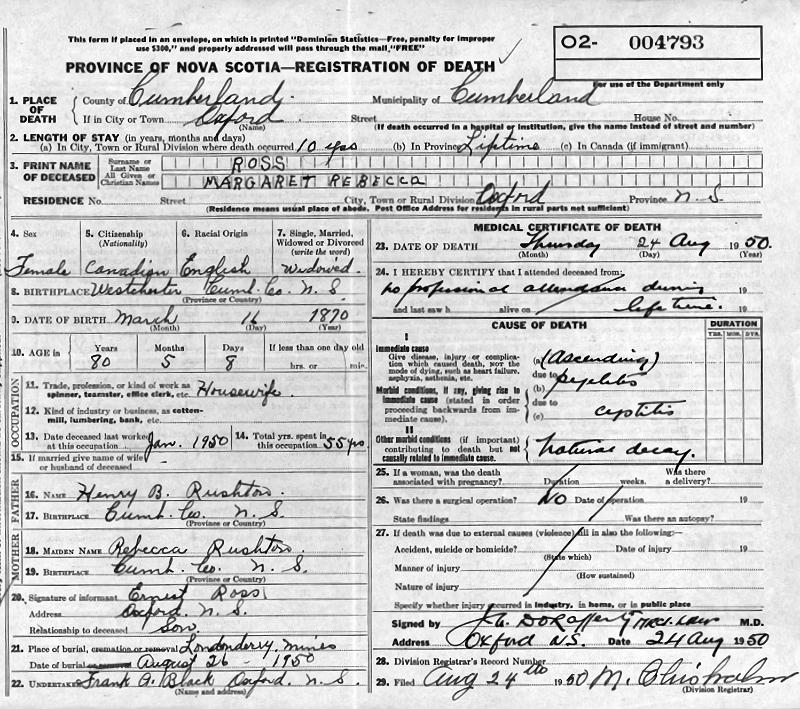 This form if placed in an envelope, on which is printed "Dominion Statistics—Free, penalty for improper
use $300," and properly addressed will pass through the mail, "FREE"
O2- 004793
PROVINCE OF NOVA SCOTIA—REGISTRATION OF DEATH
For use of the Department only
1. PLACE OF DEATH County of Cumberland Municipality of Cumberland
If in City or Town Oxford Street House No.
(Name) (If death occurred in a hospital or institution, give the name instead of street and number)
2. LENGTH OF STAY (in years, months and days)
(a) In City, Town or Rural Division where death occurred 10 yrs (b) In Province Liftime (c) In Canada (if immigrant)
3. PRINT NAME OF DECEASED Surname or Last Name ROSS
All Given or Christian Names MARGARET REBECCA
RESIDENCE No. Street City, Town or Rural Division Oxford Province N.S.
(Residence means usual place of abode. Post Office Address for residents in rural parts not sufficient)
4. Sex 5. Citizenship (Nationality) 6. Racial Origin 7. Single, Married, Widowed or Divorced (write the word)
Female Canadian English Widowed.
8. BIRTHPLACE Westchester Cumb. Co. N.S.
(Province or Country)
9. DATE OF BIRTH March 16 1870
(Month) (Day) (Year)
10. AGE in Years Months Days If less than one day old
80 5 8 hrs. or min.
OCCUPATION
11. Trade, profession, or kind of work as spinner, teamster, office clerk, etc. Housewife.
12. Kind of industry or business, as cotton-mill, lumbering, bank, etc.
13. Date deceased last worked at this occupation Jan. 1950 14. Total yrs. spent in this occupation 55 yrs.
15. If married give name of wife or husband of deceased
FATHER
16. NAME Henry B. Rushton.
17. BIRTHPLACE Cumb. Co. N.S.
(Province or Country)
MOTHER
18. MAIDEN NAME Rebecca Rushton.
19. BIRTHPLACE Cumb. Co. N.S.
(Province or Country)
20. Signature of informant Ernest Ross
Address Oxford. N.S.
Relationship to deceased Son.
21. Place of burial, cremation or removal Londonderry. Mines
Date of burial August 26 - 1950
22. Undertaker Frank A. Black Oxford. N.S.
(Name and address)
MEDICAL CERTIFICATE OF DEATH
23. DATE OF DEATH Thursday 24 Aug 1950.
(Month) (Day) (Year)
24. I HEREBY CERTIFY that I attended deceased from:
no professional attendance during 19
and last saw h alive on lifetime. 19
CAUSE OF DEATH DURATION
YRS. MOS. DYS.
I
Immediate cause
Give disease, injury or complication which caused death, NOT the mode of dying, such as heart failure, asphyxia, asthenia, etc.
(a) (Ascending)
due to pyelitis
Morbid conditions, if any, giving rise to immediate cause (stated in order proceeding backwards from immediate cause).
(b)
due to
(c) cystitis
II
Other morbid conditions (if important) contributing to death but not causally related to immediate cause.
natural decay.
25. If a woman, was the death associated with pregnancy? Duration weeks. Was there a delivery?
26. Was there a surgical operation? NO Date of operation 19
State findings Was there an autopsy?
27. If death was due to external causes (violence) fill in also the following:
Accident, suicide or homicide? Date of injury 19
(State which)
Manner of injury
(How sustained)
Nature of injury
Specify whether injury occurred in industry, in home, or in public place
Signed by M.D.
Address Oxford N.S. Date 24 Aug 1950
28. Division Registrar's Record Number
29. Filed Aug 24th 1950 M. Chisholm
(Division Registrar)